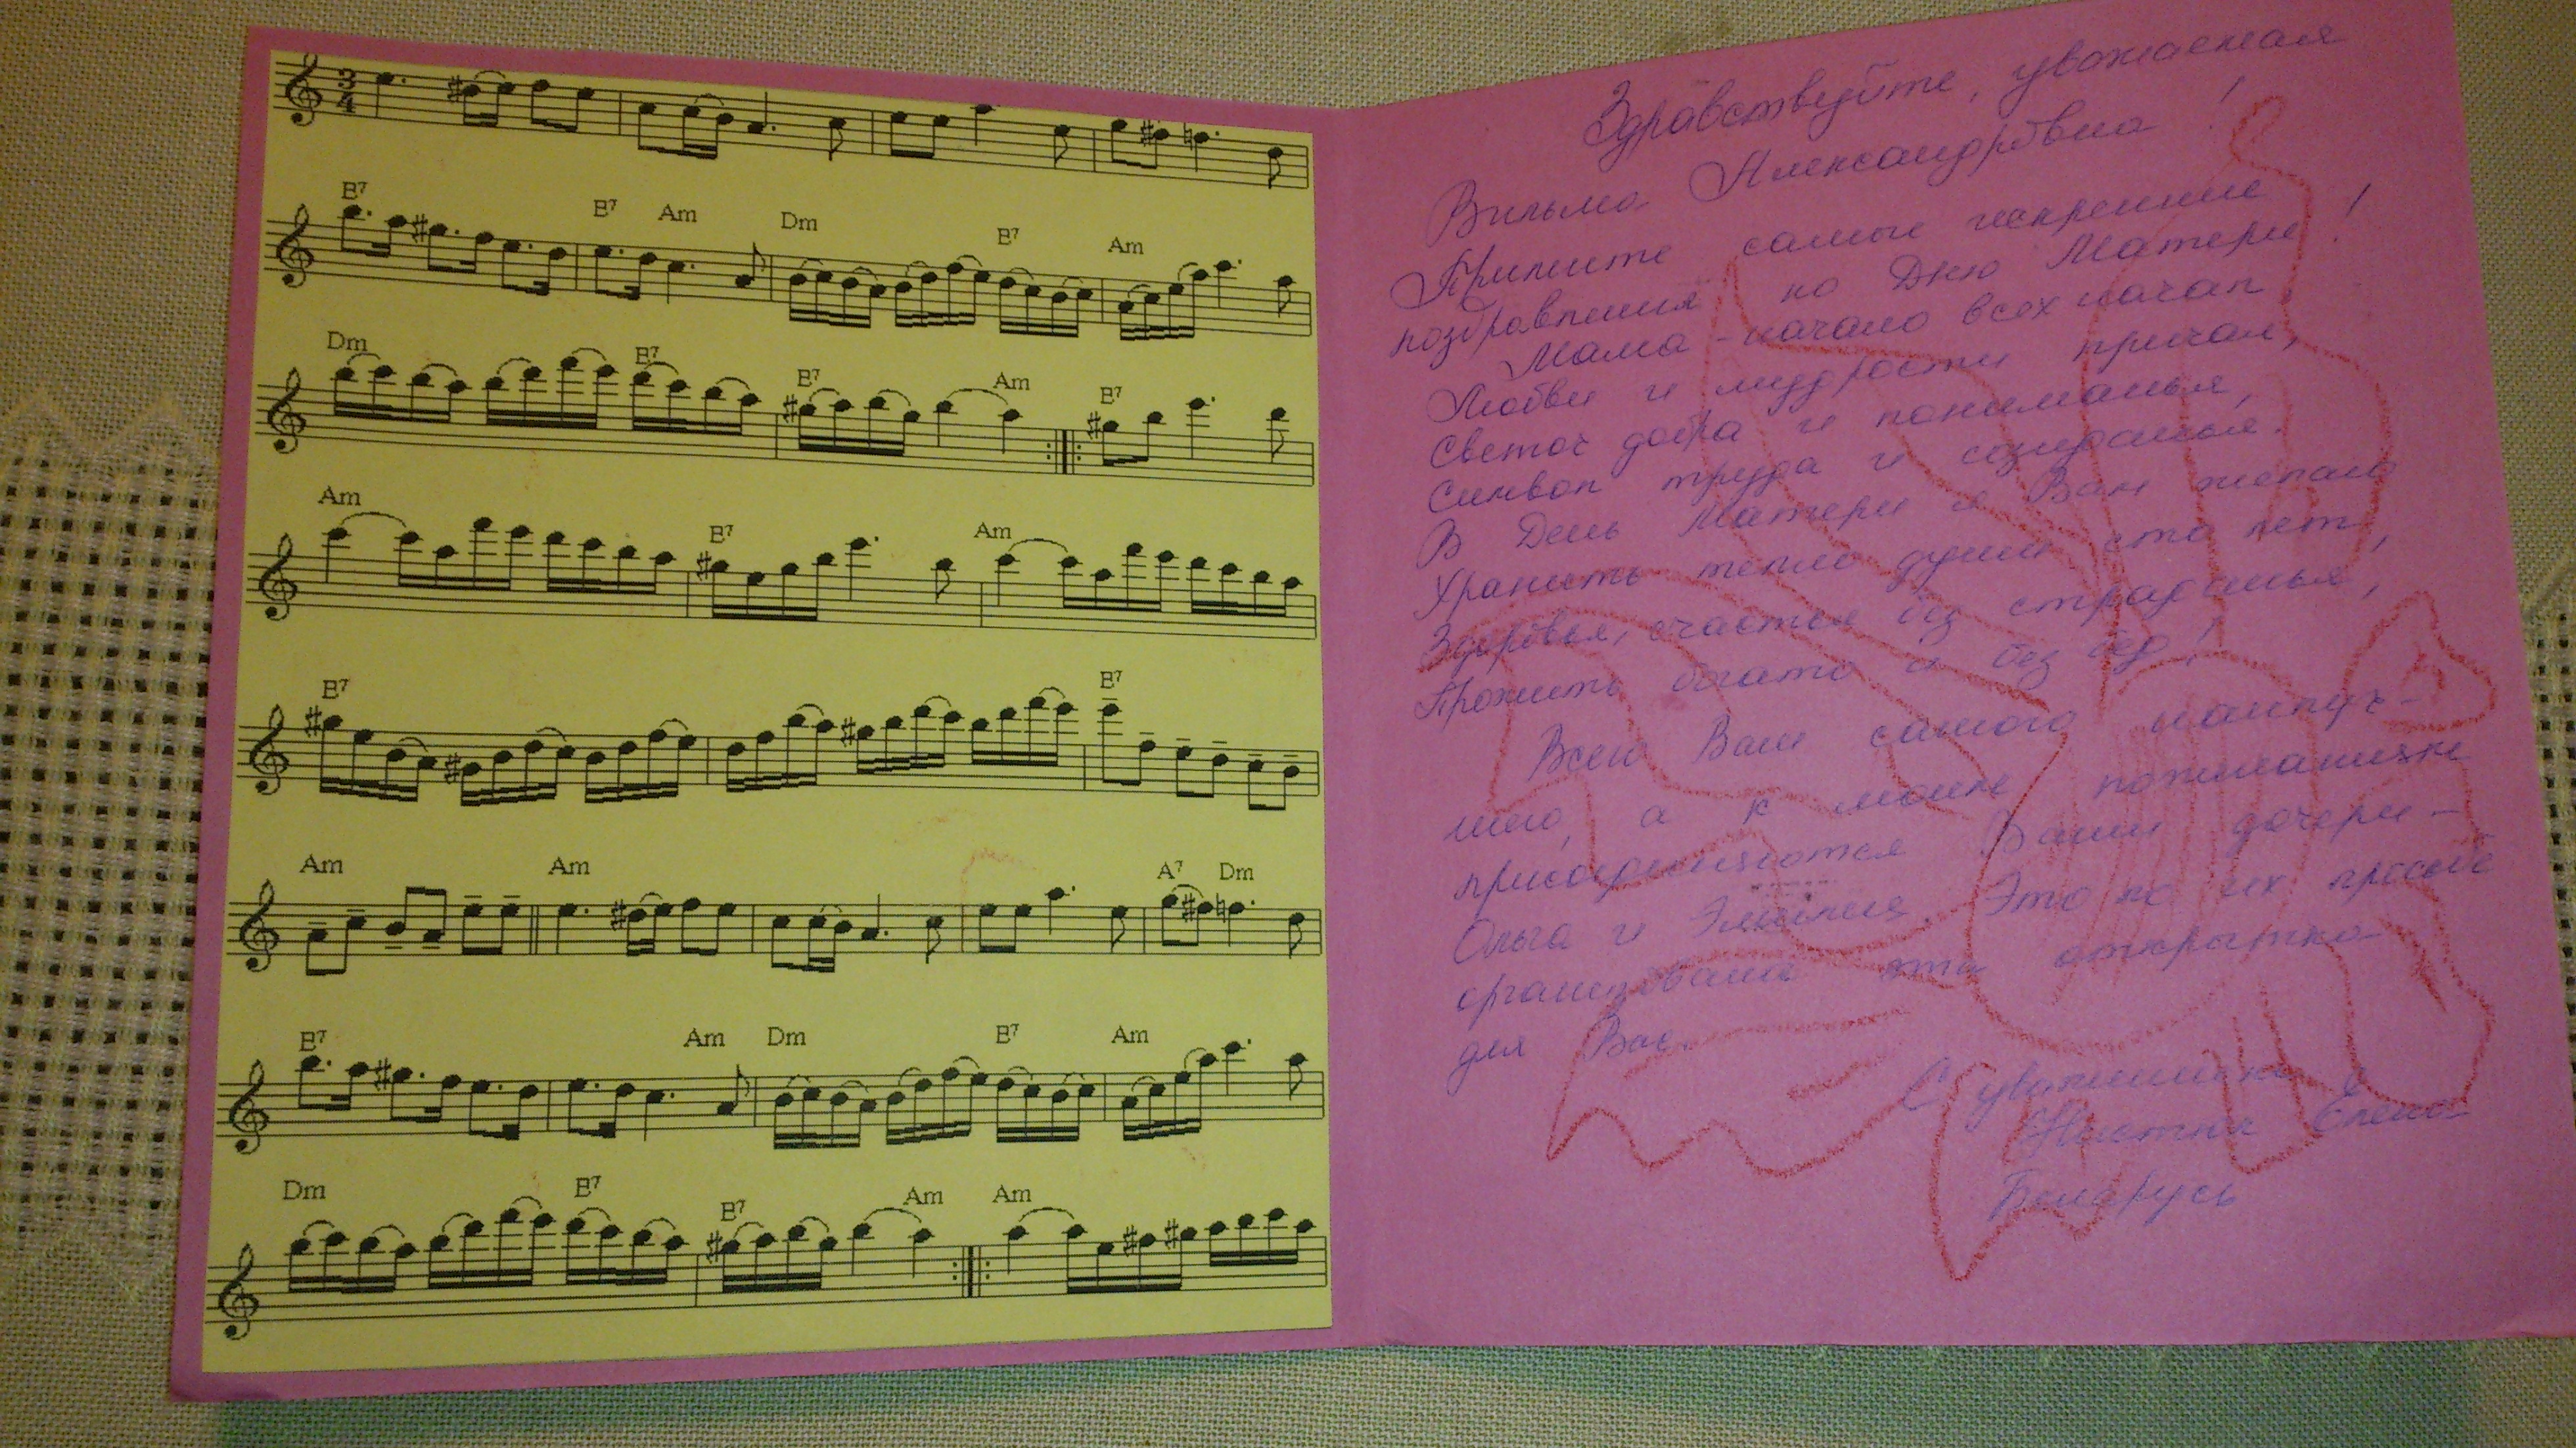 3
4
E7 E7 Am Dm E7 Am
Dm E7 E7 Am E7
Am E7 Am
E7 E7
Am Am A7 Dm
E7 Am Dm E7 Am
Dm E7 E7 Am Am
Здравствуйте, уважаемая
Вильма Александровна!
Примите самые искренние
поздравления ко Дню Матери!
Мама - начало всех начал
Любви и мудрости причал,
Светоч добра и пониманья,
Символ труда и созиданья.
В День Матери я Вам желаю
Хранить тепло души сто лет,
Здоровья, счастья без страданья,
Прожить богато и без бед!
Всего Вам самого наилуч-
шего, а к моим пожеланиям
присоединяются Ваши дочери -
Ольга и Эмилия. Это по их просьбе
организована эта открытка
для Вас.
С уважением
Елена
Беларусь